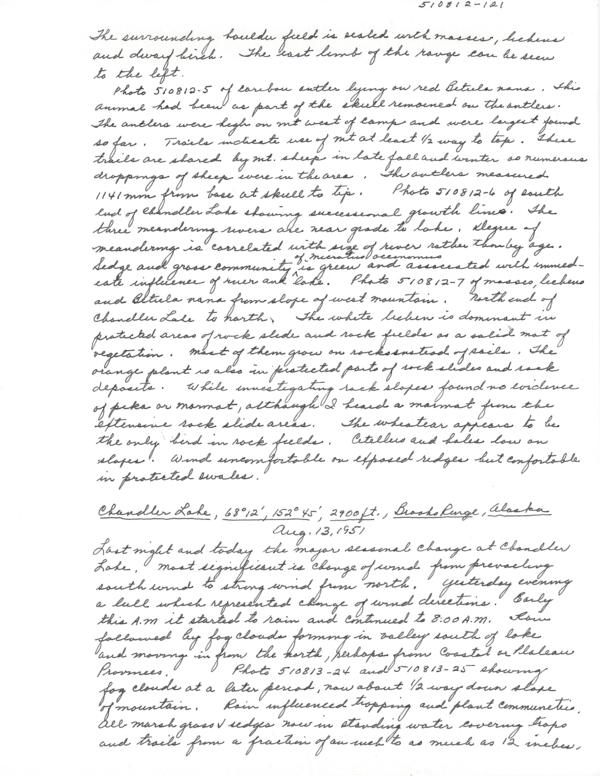 510812-121
The surrounding boulder field is sealed with mosses, lichens
and dwarf birch. The east limb of the range can be seen
to the left.
Photo 510812-5 of caribou antler lying on red Betula nana. This
animal had been as part of the skull remained on the antlers.
The antlers were high on mt west of camp and were largest found
so far. Trails indicate use of mt at least 1/2 way to top. These
trails are shared by mt. sheep in late fall and winter as numerous
droppings of sheep were in the area. The antlers measured
1141 mm from base at skull to tip. Photo 510812-6 of south
end of Chandler Lake showing successional growth lines. The
three meandering rivers are near grade to lake. Degree of
meandering is correlated with size of river rather than by age.
Sedge and grass community of Microtus oeconomus is green and associated with immed-
iate influence of rivers and lake. Photo 510812-7 of mosses, lichens
and Betula nana from slope of west mountain. North end of
Chandler Lake to north. The white lichen is dominant in
protected areas of rock slide and rock fields as a solid mat of
vegetation. Most of them grow on rocks instead of soils. The
orange plant is also in protected parts of rock slides and rock
deposits. While investigating rock slopes found no evidence
of pika or marmot, although I heard a marmot from the
extensive rock slide areas. The wheatear appears to be
the only bird in rock fields. Citellus and holes low on
slopes. Wind uncomfortable on exposed ridges but comfortable
in protected swales.
Chandler Lake, 68°12', 152°45', 2900 ft., Brooks Range, Alaska
Aug. 13, 1951
Last night and today the major seasonal change at Chandler
Lake. Most significant is change of wind from prevailing
south wind to strong wind from north. Yesterday evening
a lull which represented change of wind directions. Early
this A.M it started to rain and continued to 8:00 A.M. Rain
followed by fog clouds forming in valley south of lake
and moving in from the north, perhaps from Coastal or Plateau
Provinces. Photo 510813-24 and 510813-25 showing
fog clouds at a later period, now about 1/2 way down slope
of mountain. Rain influenced trapping and plant communities.
All marsh grass & sedges now in standing water covering traps
and trails from a fraction of an inch to as much as 12 inches.